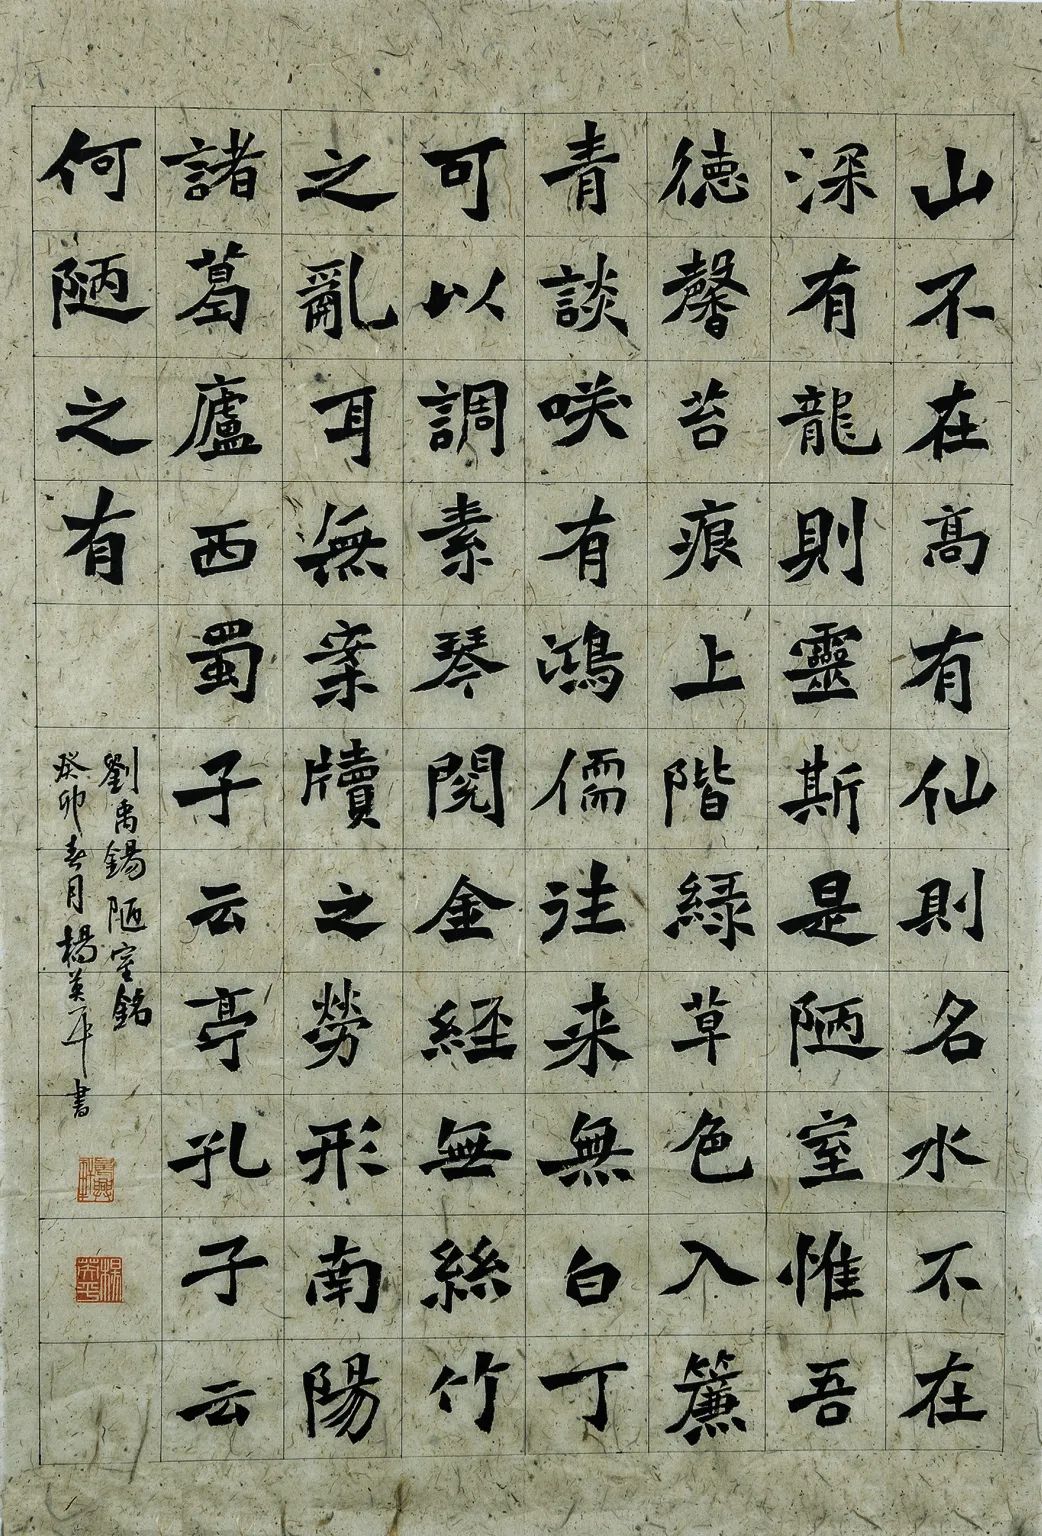 山不在高有仙則名水不在
深有龍則靈斯是陋室惟吾
德馨苔痕上階緑草色入簾
青談咲有鴻儒往来無白丁
可以調素琴閱金經無絲竹
之亂耳無案牘之勞形南陽
諸葛廬西蜀子云亭孔子云
何陋之有
劉禹錫陋室銘
癸卯春月楊英平書
楊英平